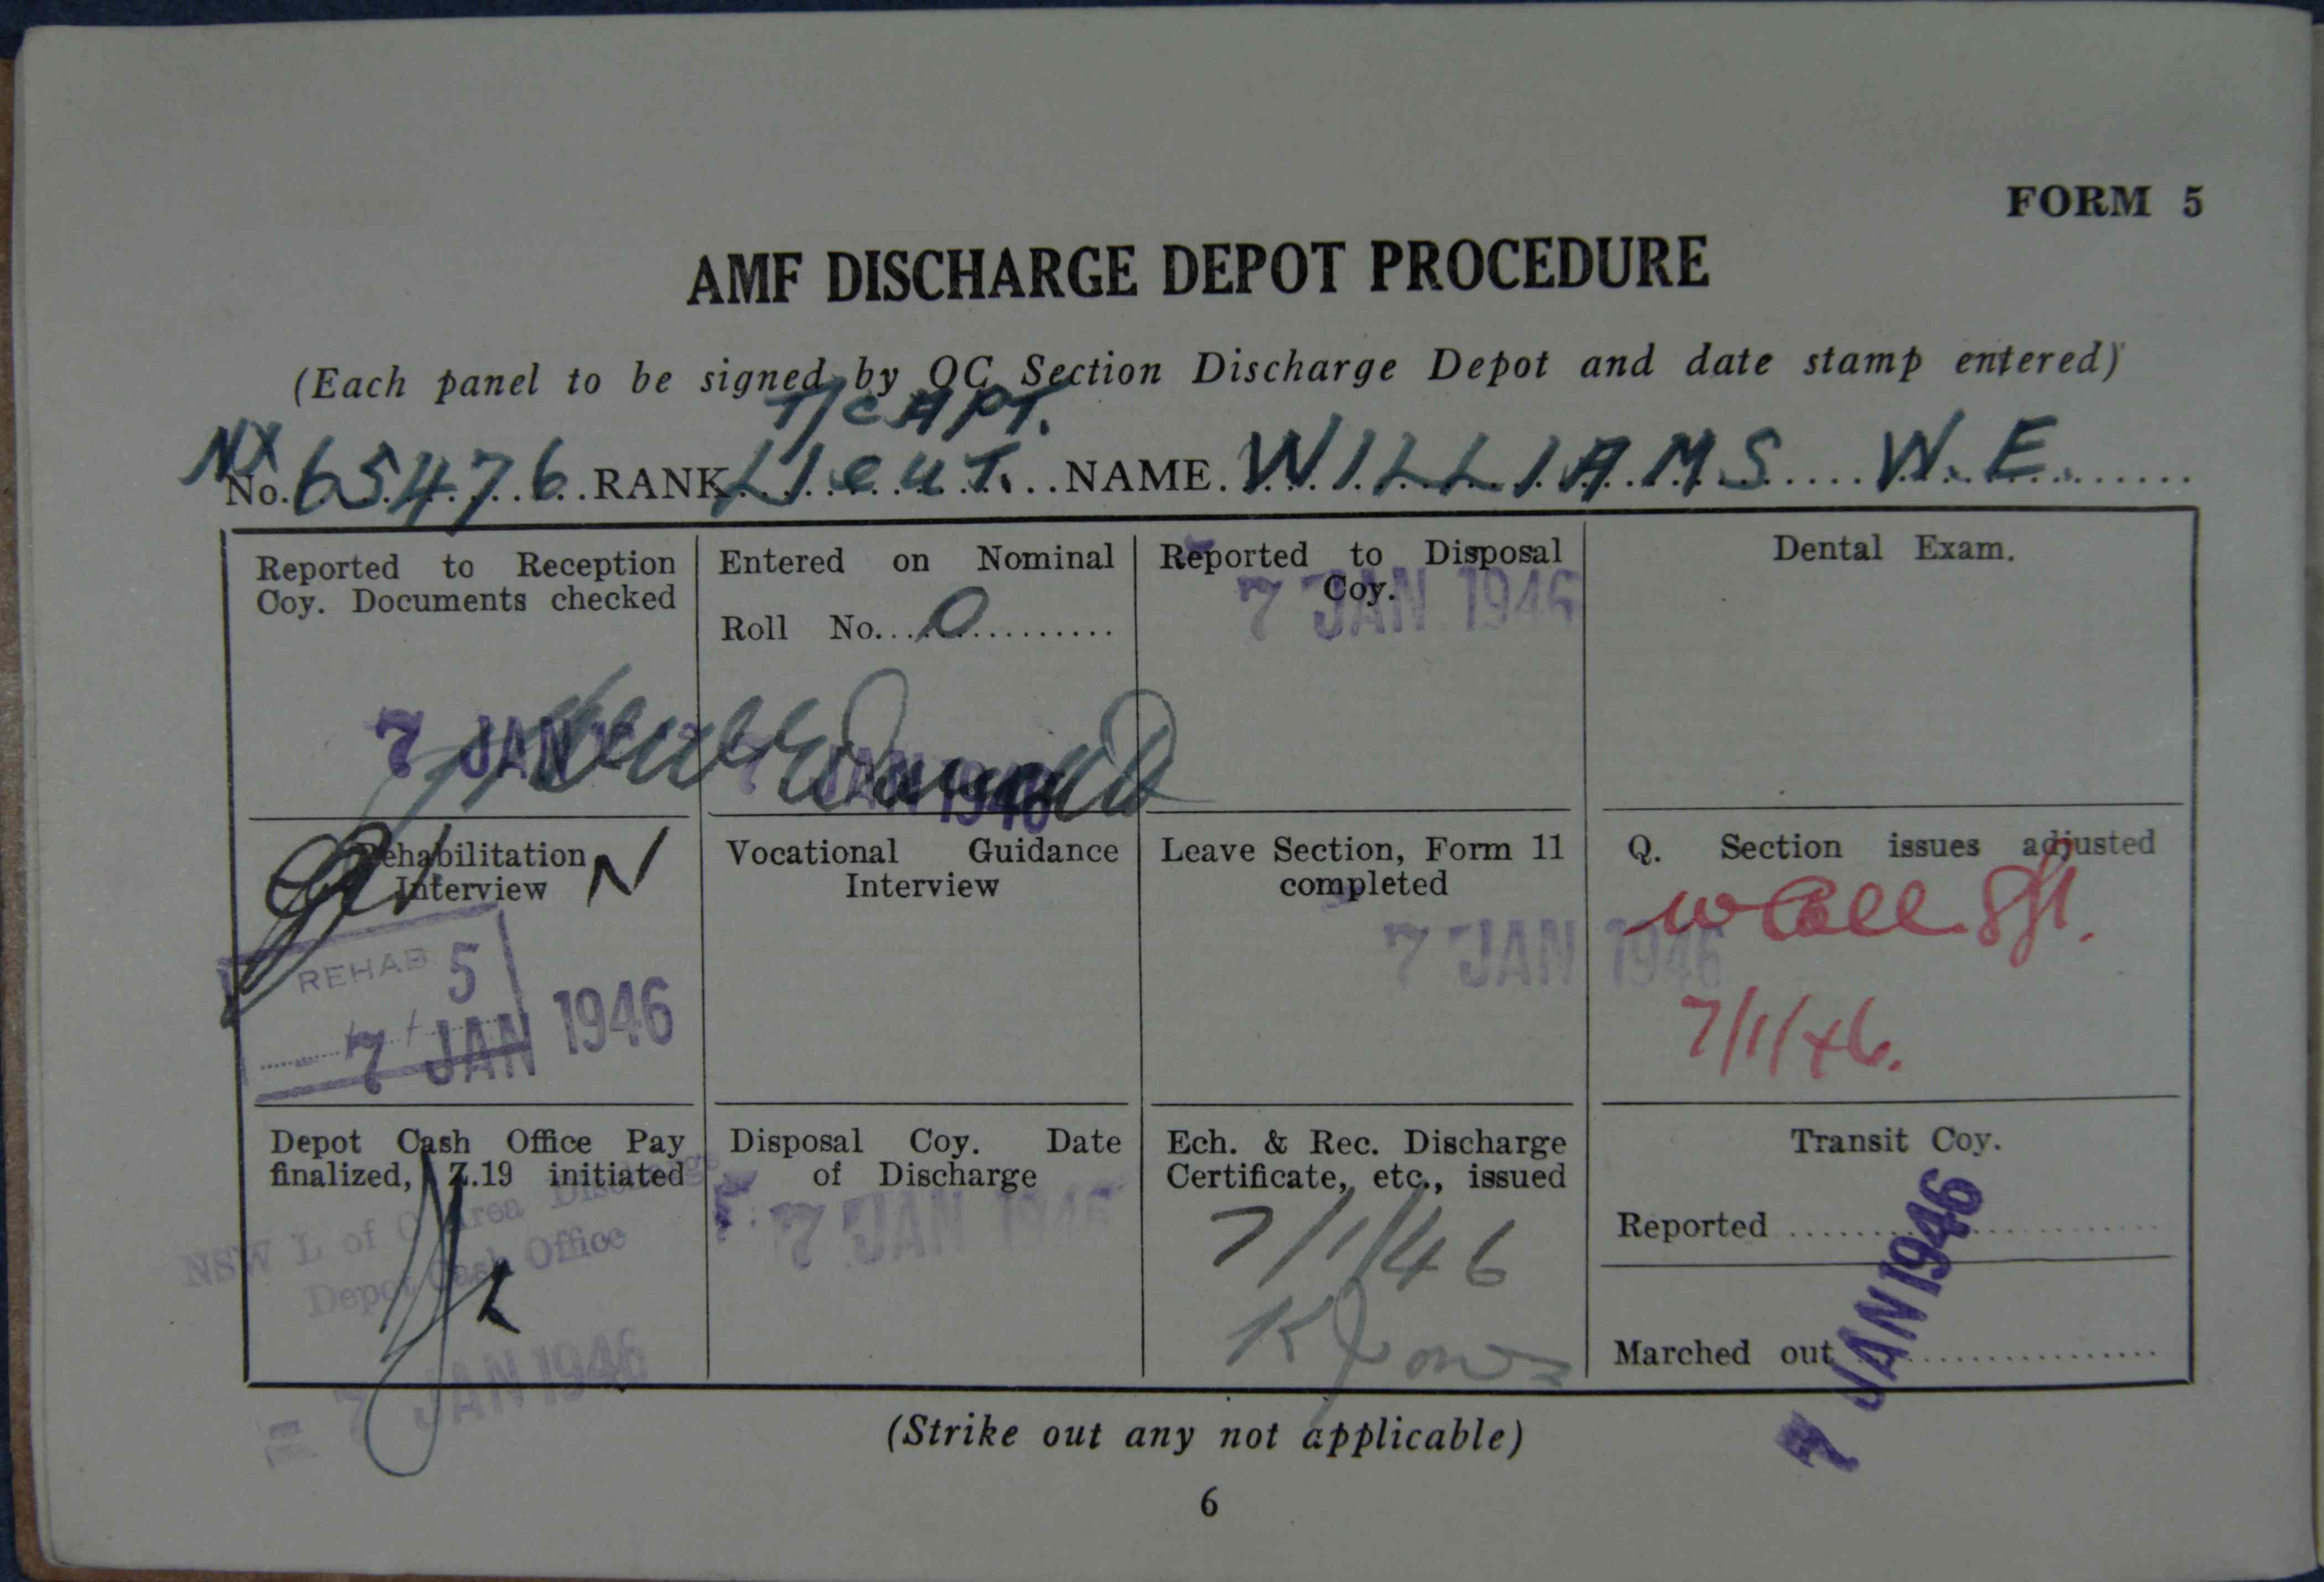 FORM 5
AMF DISCHARGE DEPOT PROCEDURE
(Each panel to be signed by OC Section Discharge Depot and date stamp entered)
T/CAPT.
NX
No. 65476 RANK Lieut. NAME. WILLIAMS W. E.
Reported to Reception
Coy. Documents checked
7 JAN
Entered on Nominal
Roll No. O
7 JAN 1946
Reported to Disposal
Coy.
7 JAN 1946
Dental Exam.
Rehabilitation
Interview N
REHAB 5
7 JAN 1946
Vocational Guidance
Interview
Leave Section, Form 11
completed
7 JAN 1946
Q. Section issues adjusted
Sgt.
7/1/46.
Depot Cash Office Pay
finalized, Z.19 initiated
NSW L of C Area Discharge
Depot Cash Office
7 JAN 1946
Disposal Coy. Date
of Discharge
7 JAN 1946
Ech. & Rec. Discharge
Certificate, etc., issued
7/1/46
K Jones
Transit Coy.
Reported
Marched out
7 JAN 1946
(Strike out any not applicable)
6